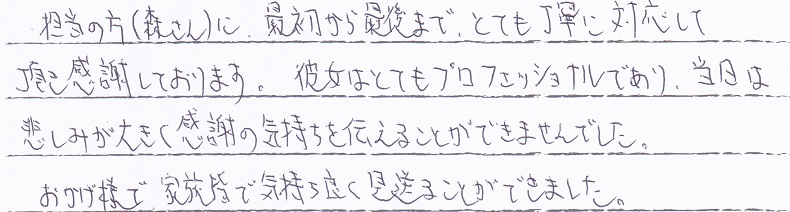 担当の方(森さん)に、最初から最後まで、とても丁寧に対応して
頂き感謝しております。 彼女はとてもプロフェッショナルであり、当日は
悲しみが大きく感謝の気持ちを伝えることができませんでした。
おかげ様で、家族皆で気持ち良く見送ることができました。